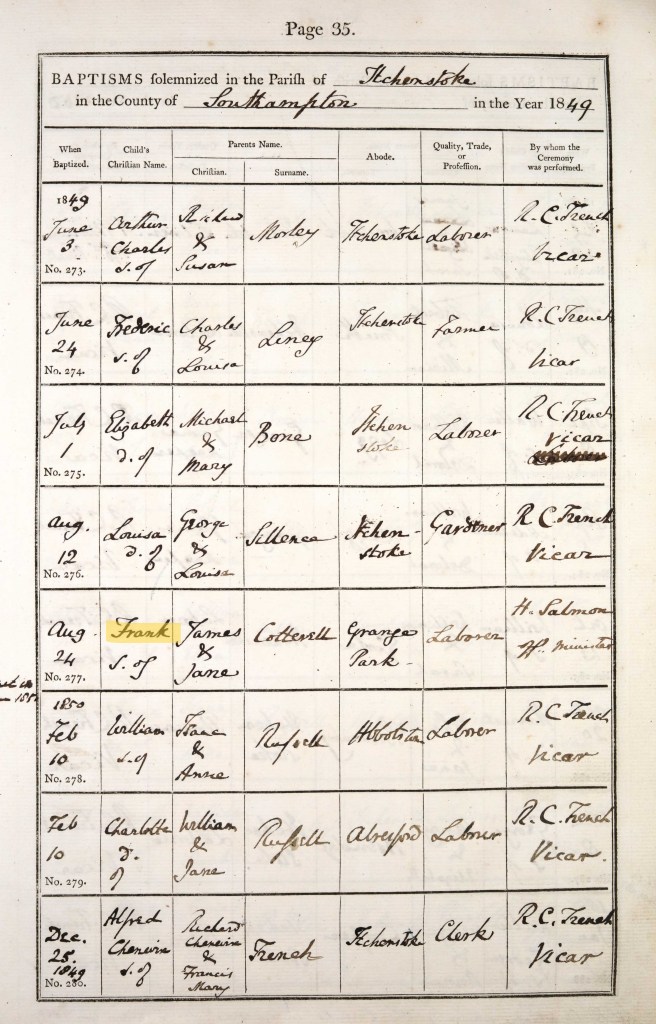 Page 35.
BAPTISMS solemnized in the Parish of Itchenstoke
in the County of Southampton in the Year 1849
When Baptized.
Child's Christian Name.
Parents Name.
Christian.
Surname.
Abode.
Quality, Trade, or Profession.
By whom the Ceremony was performed.
1849
June
3
No. 273.
Arthur
Charles
s. of
Richard
&
Susan
Morley
Itchenstoke
Laborer
R. C. French
Vicar
June
24
No. 274.
Frederic
s. of
Charles
&
Louisa
Itchenstoke
Farmer
R. C. French
Vicar
July
1
No. 275.
Elizabeth
d. of
Michael
&
Mary
Bone
Itchen
stoke
Laborer
R. C. French
Vicar
Aug.
12
No. 276.
Louisa
d. of
George
&
Louisa
Sillence
Itchen-
stoke
Gardener
R. C. French
Vicar
Aug
24
No. 277.
Frank
s. of
James
&
Jane
Cotterell
Grange
Park
Laborer
H. Salmon
Minister
1850
Feb
10
No. 278.
William
s. of
Isaac
&
Anne
Russell
Abbotston
Laborer
R. C. French
Vicar
Feb
10
No. 279.
Charlotte
d.
of
William
&
Jane
Russell
Alresford
Labourer
R. C. French
Vicar.
Dec.
25.
1849
No. 280.
Alfred
Chenevix
s. of
Richard
Chenevix
&
Francis
Mary
French
Itchenstoke
Clerk
R. C. French
Vicar